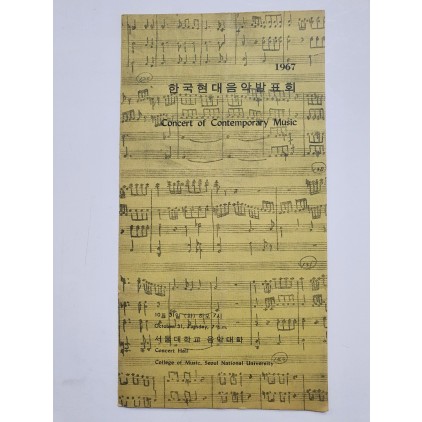 1967
한국현대음악발표회
Concert of Contemporary Music
10월 31일 (화) 하오 7시
October 31, Tuesday, 7 p.m.
서울대학교 음악대학
Concert Hall
College of Music, Seoul National University